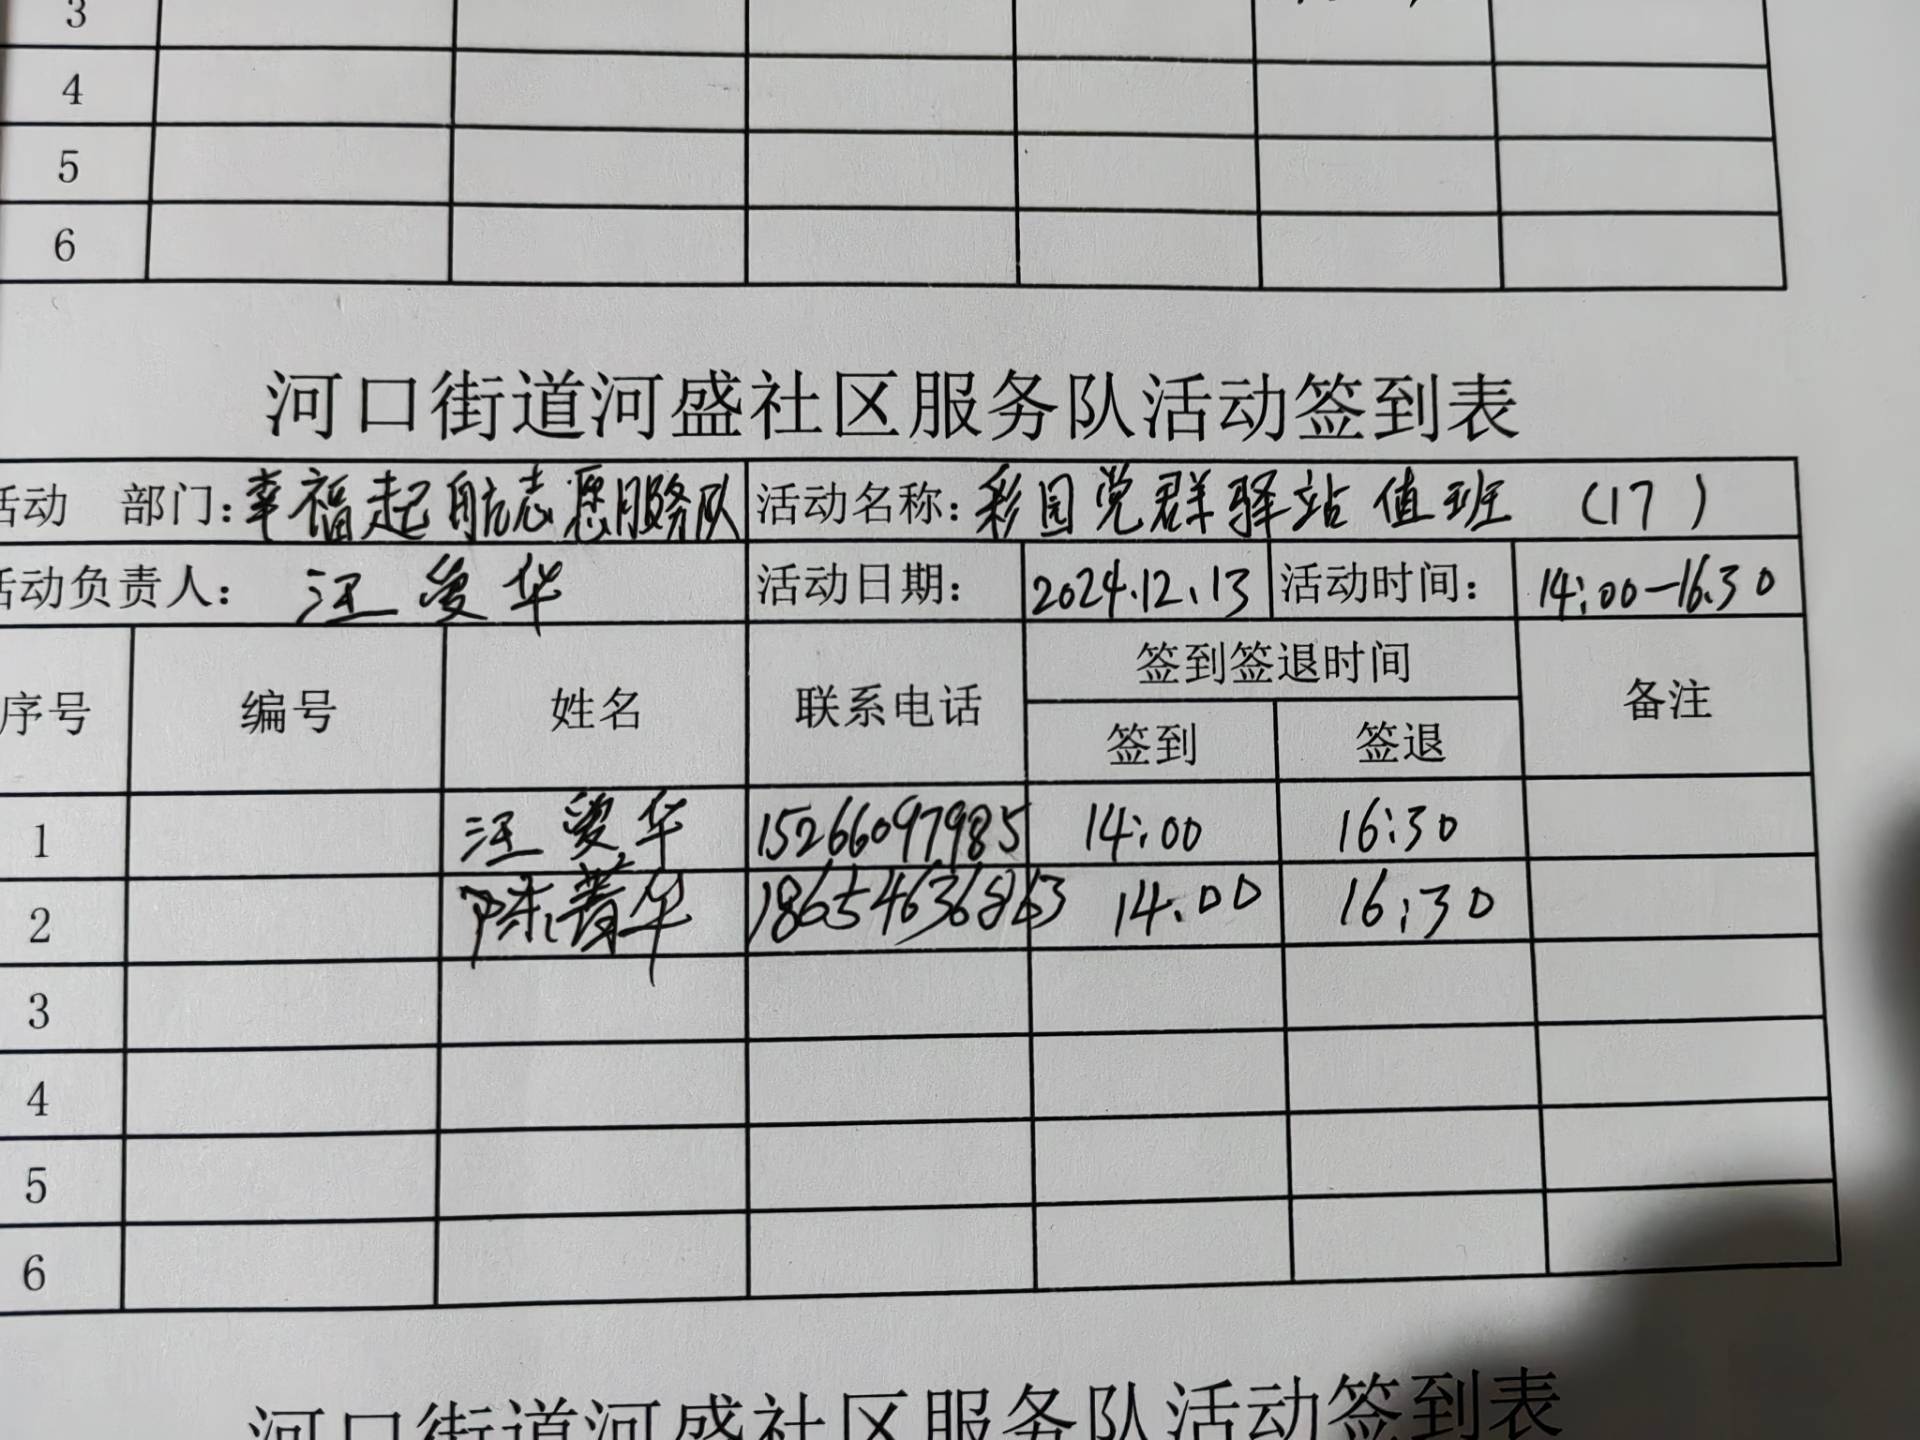 3
4
5
6
河口街道河盛社区服务队活动签到表
活动 部门：幸福起航志愿服务队 活动名称：彩园党群驿站值班 （17）
活动负责人： 汪爱华 活动日期： 2024.12.13 活动时间： 14:00-16:30
序号 编号 姓名 联系电话 签到签退时间 备注
签到 签退
1 汪爱华 15266097985 14:00 16:30
2 陈菁华 18654636863 14:00 16:30
3
4
5
6
河口街道河盛社区服务队活动签到表